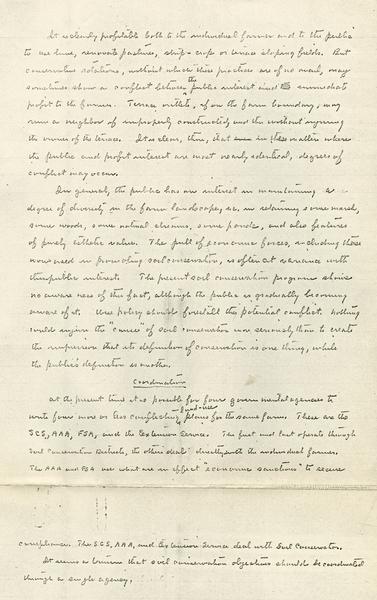 It is clearly profitable both to the individual farmer and to the public
to use lime, renovate pastures, strip-crop or terrace sloping fields. But
conservation rotations, without which these practices are of no avail, may
sometimes show a conflict between the public interest and immediate
profit to the farmer. Terrace outlets, if on the farm boundary, may
ruin a neighbor if improperly constructed and this without injuring
the owner of the terrace. It is clear, then, that even in these matters where
the public and profit interest are most nearly identical, degrees of
conflict may occur.
In general, the public has an interest in maintaining a
degree of diversity in the farm landscape, i.e. in retaining some marsh,
some woods, some natural streams, some ponds, and also features
of purely esthetic value. The pull of economic forces, including those
now used in promoting soil conservation, is often at variance with
this public interest. The present soil conservation program shows
no awareness of this fact, although the public is gradually becoming
aware of it. Wise policy should forestall this potential conflict. Nothing
could injure the "cause" of soil conservation more seriously than to create
the impression that its definition of conservation is one thing, while
the public's definition is another.
Coordination
At the present time it is possible for four governmental agencies to
write four more or less conflicting land-use plans for the same farm. These are the
SCS, AAA, FSA, and the Extension Service. The first and last operate through
Soil Conservation Districts, the others deal directly with the individual farmer.
The AAA and FSA use what are in effect "economic sanctions" to secure
compliance. The SCS, AAA, and Extension Service deal with Soil Conservation.
It seems a truism that soil conservation objectives should be coordinated
through a single agency.